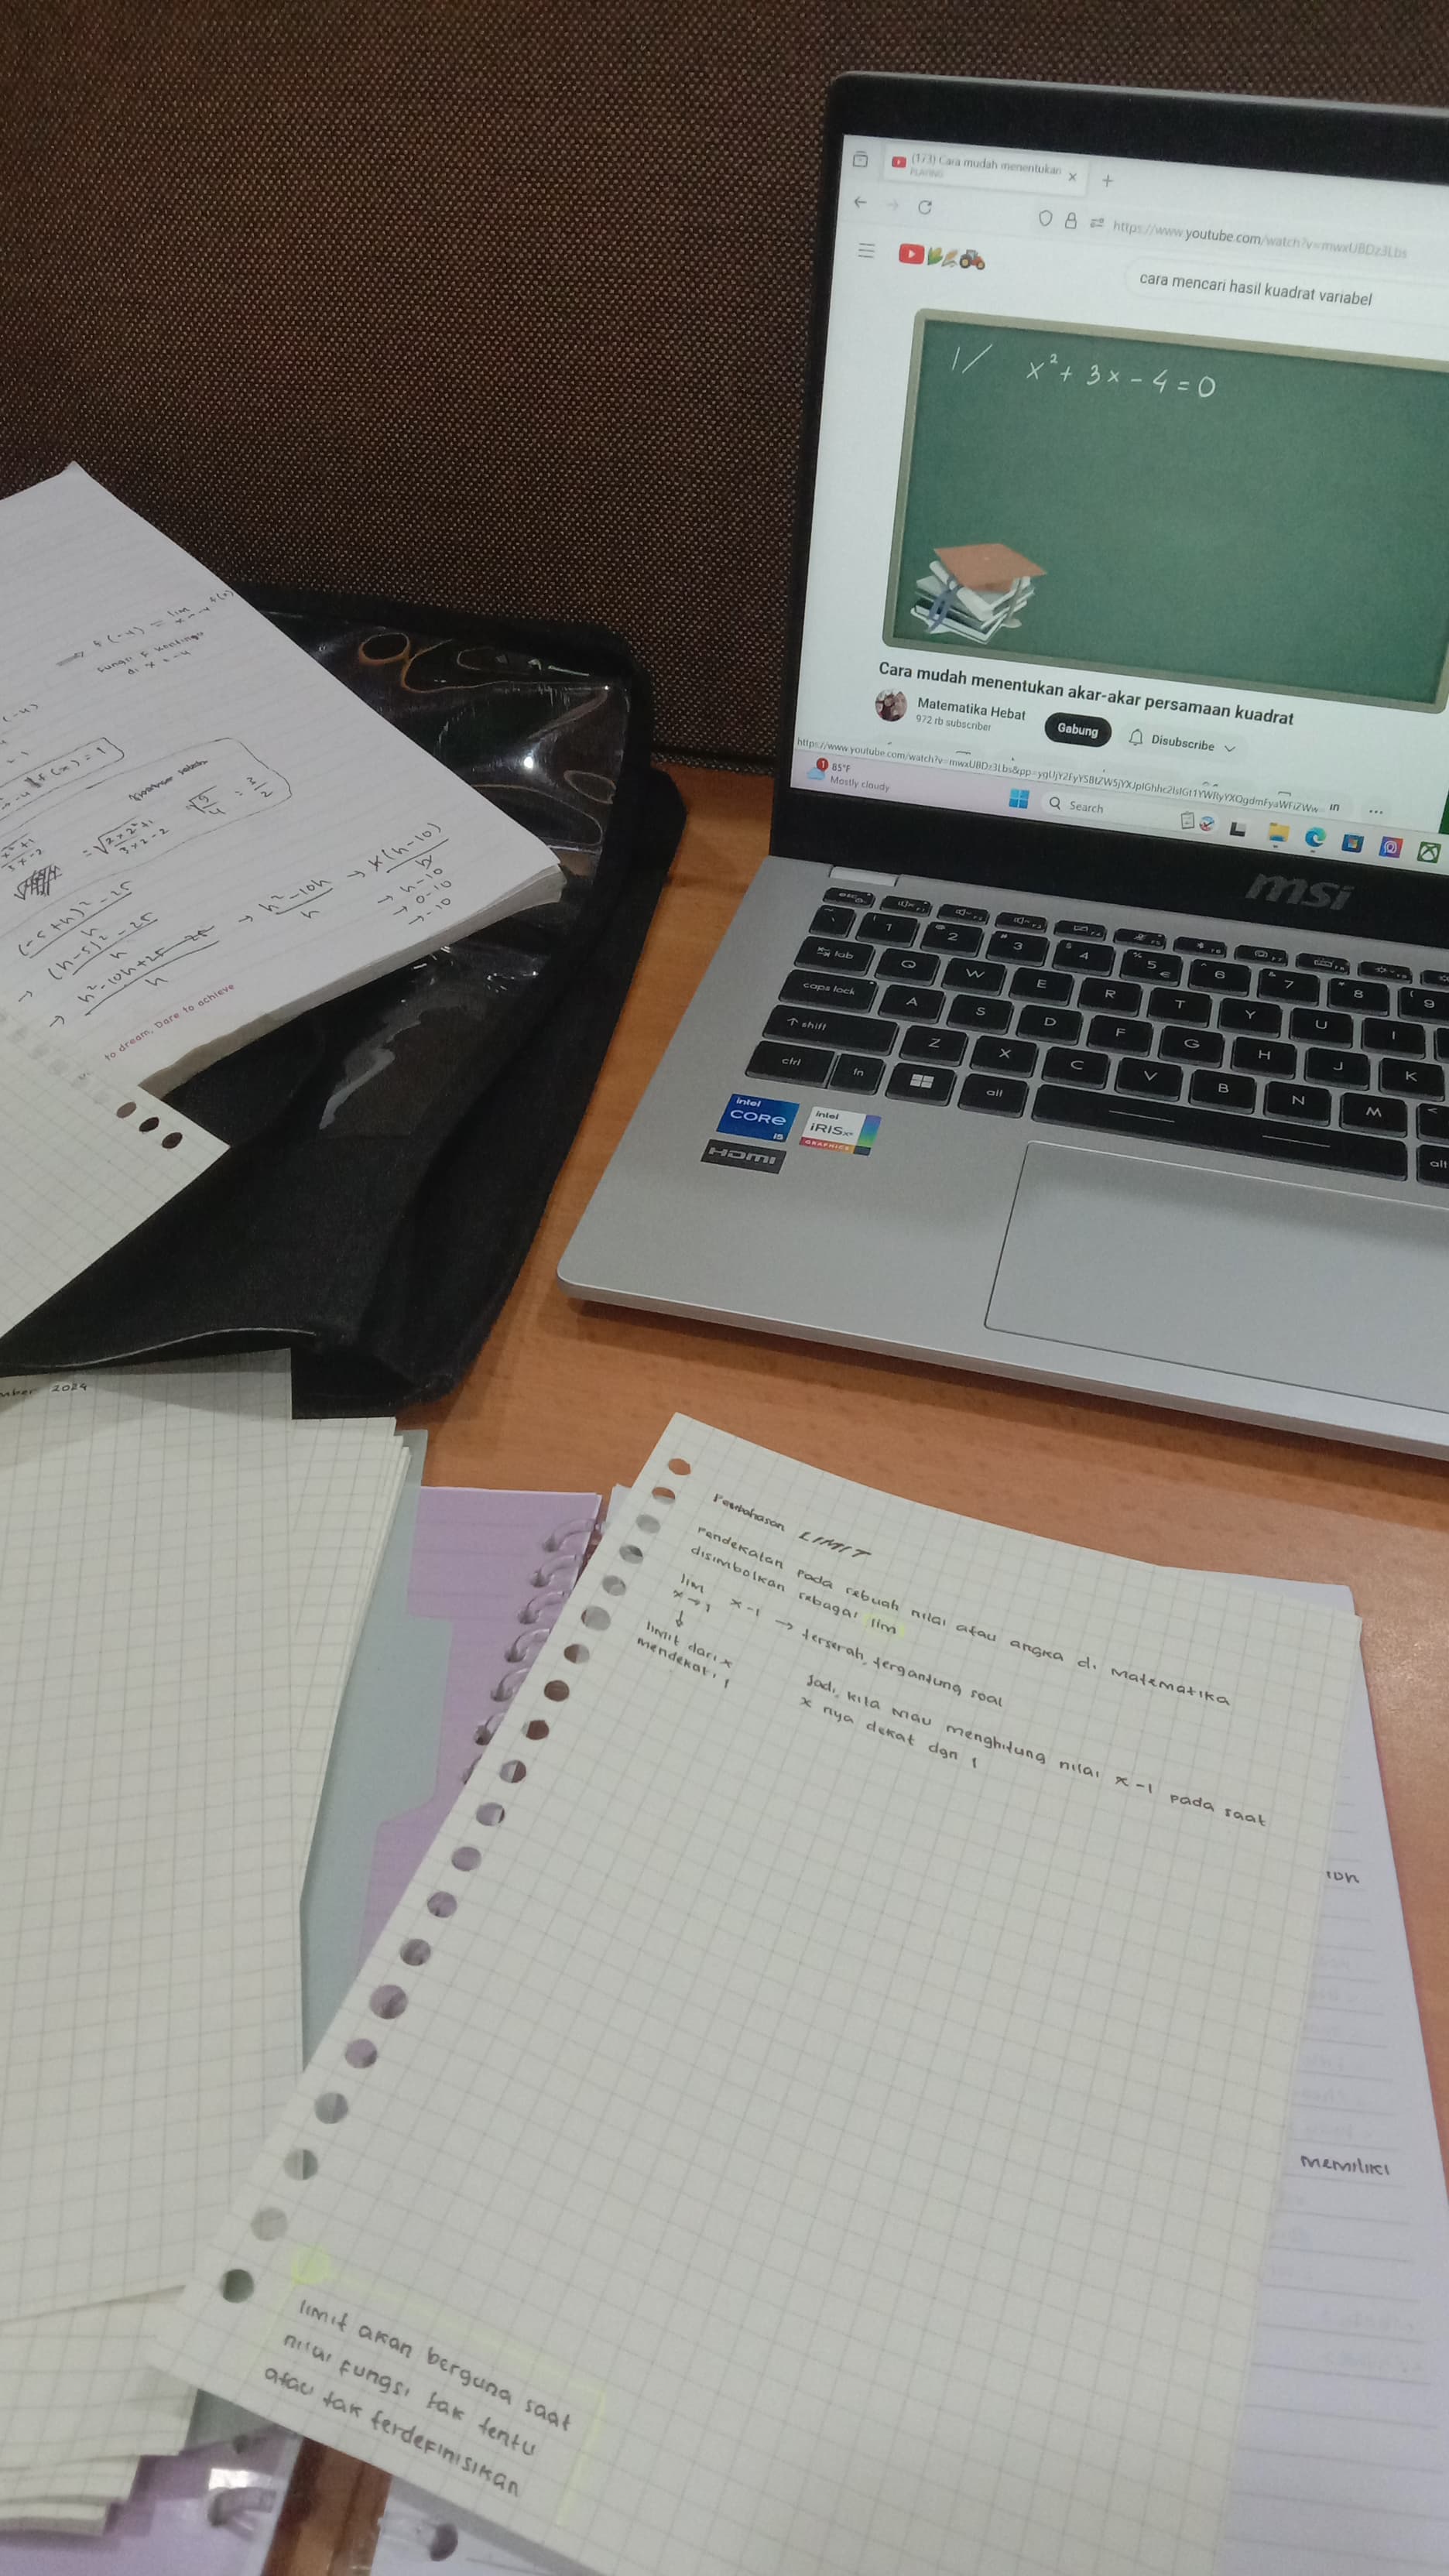 (173) Cara mudah menentukan
PLAYING
https://www.youtube.com/watch?v=mwxUBDz3Lbs
cara mencari hasil kuadrat variabel
1/ x² + 3x - 4 = 0
Cara mudah menentukan akar-akar persamaan kuadrat
Matematika Hebat
972 rb subscriber
Gabung
Disubscribe
1
85°F
Mostly cloudy
Search
msi
esc
1 2 3 4 5 6 7 8 9
tab Q W E R T Y U I
caps lock A S D F G H J K
shift Z X C V B N M
ctrl fn alt alt
intel CORE i5
intel iRISxe GRAPHICS
HDMI
→ f(-4) = lim x→-4 f(x)
fungsi f kontinyu
di x = -4
(-4)
f(x) = 1
= √ 2×2²+1 / 3×2-2
√ 9/4 = 3/2
(-5+h)² - 25 / h
→ (h-5)² - 25 / h
→ h² - 10h + 25 - 25 / h
→ h² - 10h / h
→ h(h-10) / h
→ h-10
→ 0-10
→ -10
to dream, Dare to achieve
mber 2024
Pembahasan LIMIT
Pendekatan pada sebuah nilai atau angka di Matematika
disimbolkan sebagai lim
lim x→1 x-1 → terserah, tergantung soal
↓
limit dari x
mendekati 1
Jadi, kita mau menghitung nilai x-1 pada saat
x nya dekat dgn 1
ion
memiliki
limit akan berguna saat
nilai fungsi tak tentu
atau tak terdefinisikan